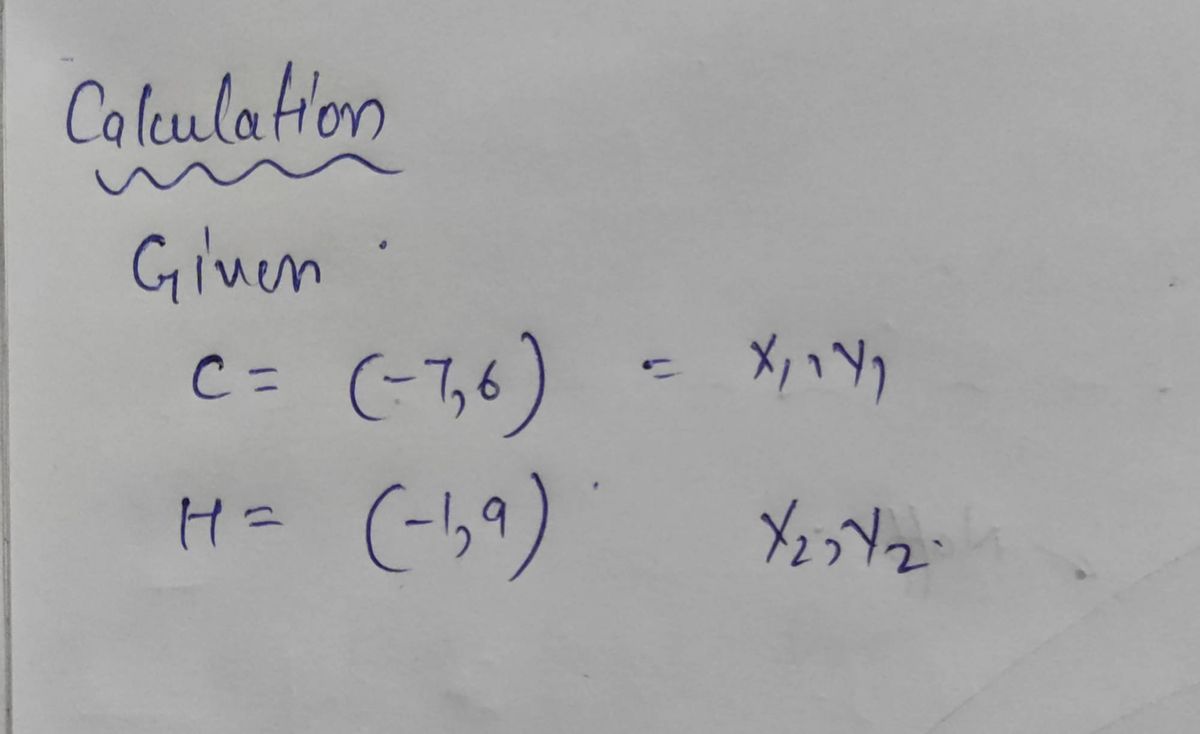 Calculation
Given
C = (-7,6) = X₁,Y₁
H = (-1,9) X₂,Y₂.